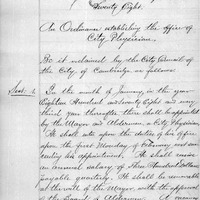 Twenty Eight.
An Ordinance establishing the office of
City Physician.
Be it ordained by the City Council of
the City of Cambridge as follows
Sect. 1. In the month of January, in the year
Eighteen Hundred and Seventy Eight and every
third year thereafter there shall be appointed
by the Mayor and Aldermen, a City Physician
He shall enter upon the duties of his office
upon the first Monday of February next suc-
ceeding his appointment. He shall receive
an annual salary of Hundred Dollars
payable quarterly. He shall be removable
at the will of the Mayor, with the approval
of the Board of Aldermen. A vacancy